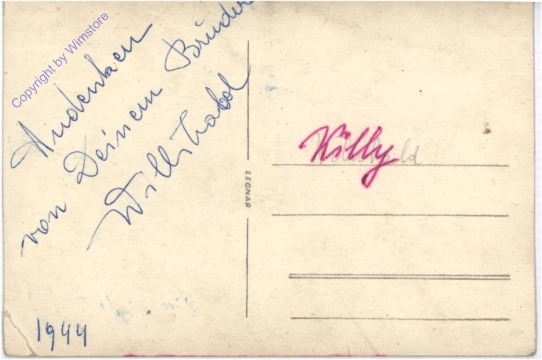 Copyright by Wimstore
Andenken
von Deinem Bruder
Willibald
1944
LEONAR
Willy